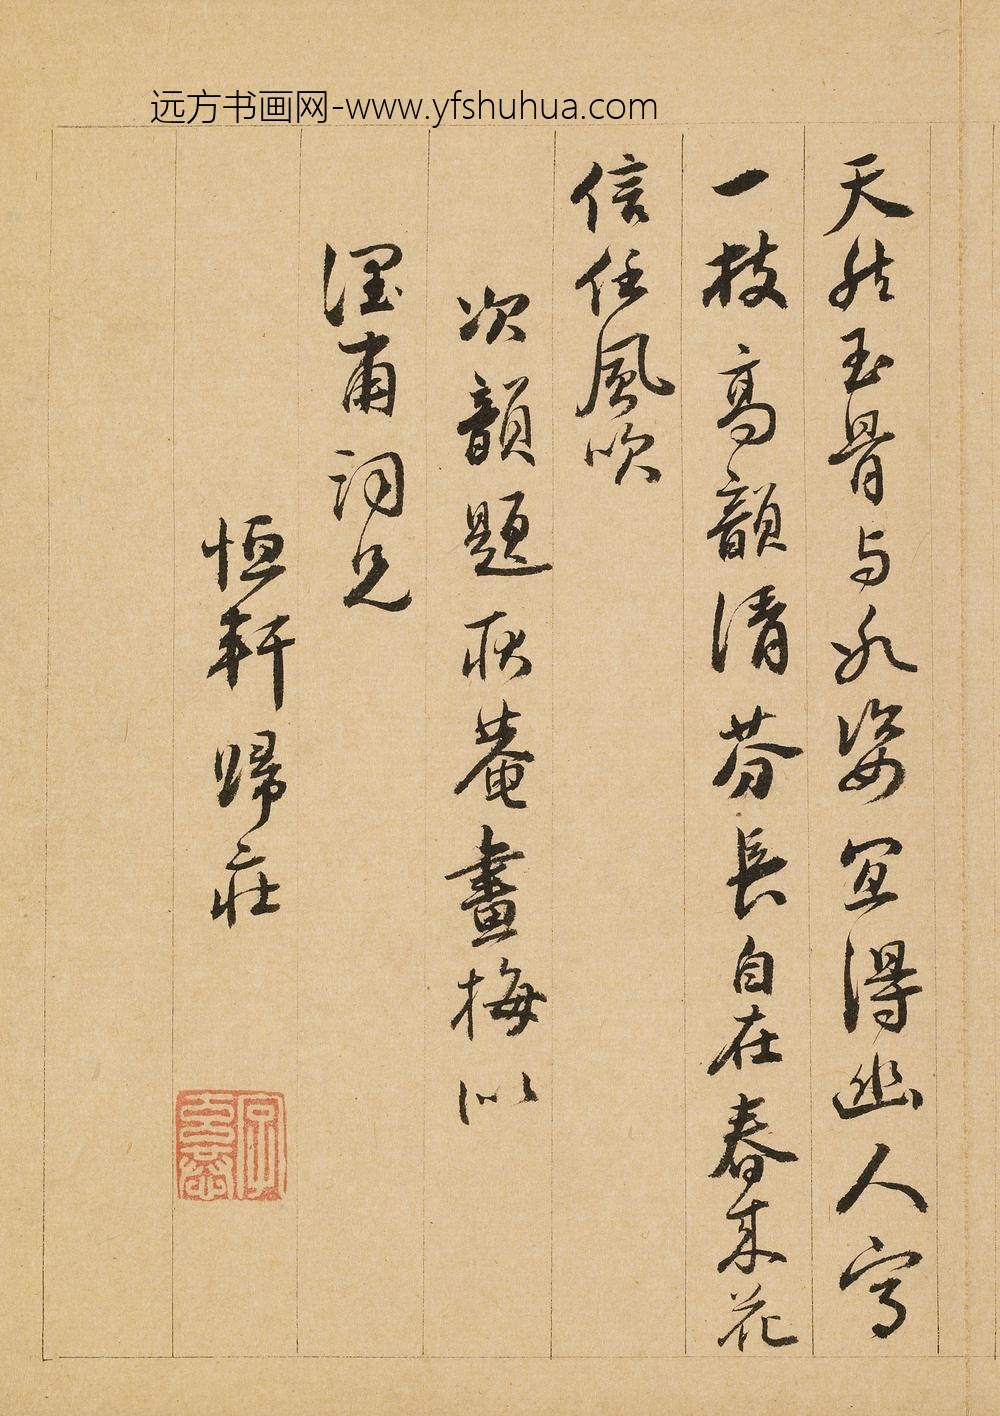 远方书画网-www.yfshuhua.com
天然玉骨与冰姿宜得幽人写
一枝高韻清芬長自在春来花
信任風吹
次韻題秋菴畫梅似
甫詞兄
恒軒歸莊